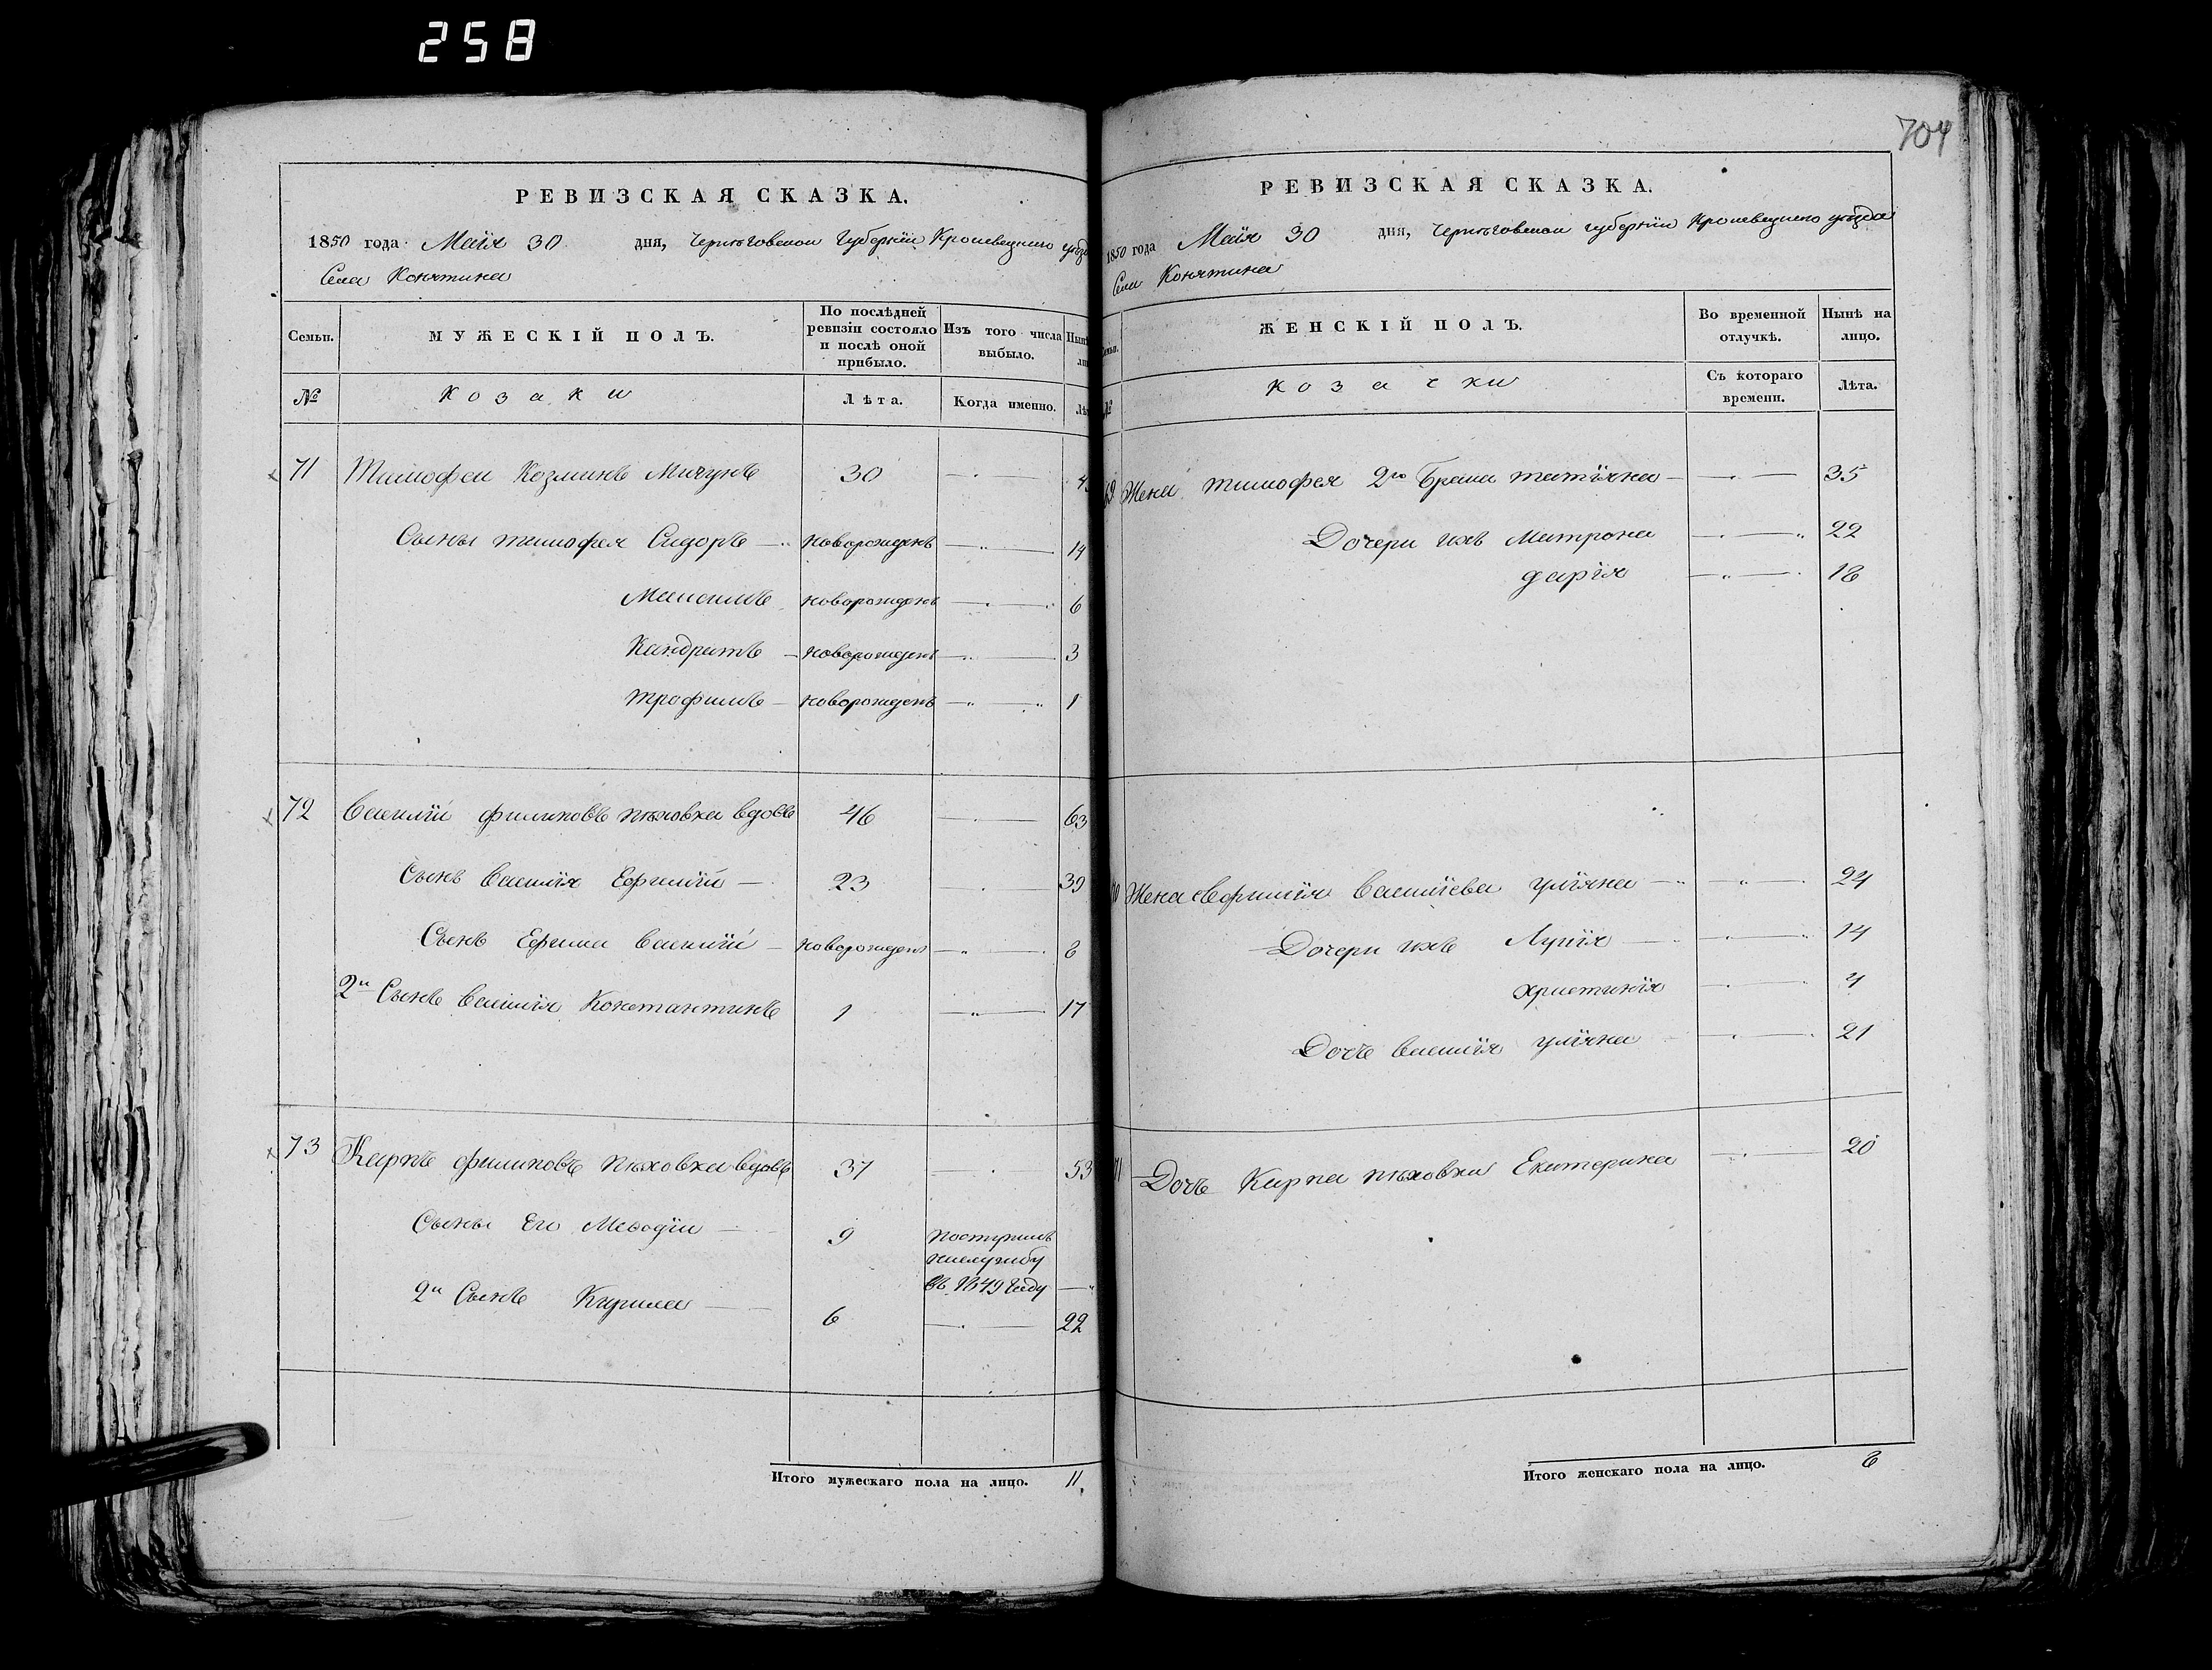 258
704
РЕВИЗСКАЯ СКАЗКА.
1850 года Маія 30 дня, Черниговской Губерніи Кролевецкого уѣзда
Села Конятина
Семьи.
МУЖЕСКІЙ ПОЛЪ.
По послѣдней ревизіи состояло и послѣ оной прибыло.
Изъ того числа выбыло.
№
Козаки
Лѣта.
Когда именно.
71 Тимофеи Козминъ Мичунъ 30
Сыны тимофея Сидоръ новорожденъ 14
Максимъ новорожденъ 6
Кандратъ новорожденъ 3
трофимъ новорожденъ 1
72 Василій филиповъ пѣховка вдовъ 46 63
Сынъ Василія Ефимій 23 39
Сынъ Ефима Василій новорожденъ 8
2й Сынъ Василія Константинъ 1 17
73 Карпъ филиповъ пѣховка вдовъ 37 53
Сыны Его Меѳодіи 9 поступилъ
наслужбу
въ 1849 Году
2й Сынъ Кирила 6 22
Итого мужескаго пола на лицо. 11
РЕВИЗСКАЯ СКАЗКА.
1850 года Маія 30 дня, Черниговской губерніи Кролевецкого уѣзда
Села Конятина
ЖЕНСКІЙ ПОЛЪ.
Во временной отлучкѣ.
Нынѣ на лицо.
Козачки
Съ котораго времени.
Лѣта.
Жена тимофея 2го Брака татіяна 35
Дочери ихъ Матрона 22
дарія 18
Жена Ефимія Василіева уліяна 24
Дочери ихъ Лукія 14
христинія 4
Дочь Василія уліяна 21
71 Дочь Карпа пѣховки Екатерина 20
Итого женскаго пола на лицо. 8